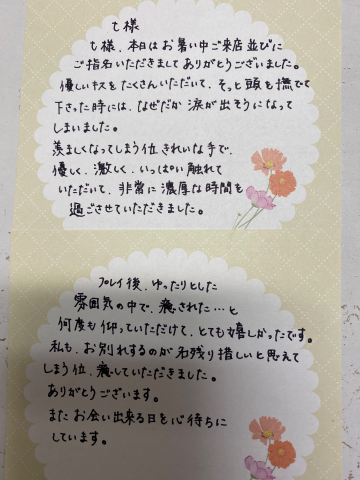 t様
t様、本日はお暑い中ご来店並びに
ご指名いただきまして ありがとうございました。
優しいキスをたくさんいただいて、そっと頭を撫でて
下さった時には、なぜだか 涙が出そうになって
しまいました。
羨ましくなってしまう位 きれいな手で、
優しく、激しく、いっぱい触れて
いただいて、非常に濃厚な時間を
過ごさせていただきました。
プレイ後、ゆったりとした
雰囲気の中で、癒された…と
何度も仰っていただけて、とても嬉しかったです。
私も、お別れするのが名残り惜しいと思えて
しまう位、癒していただきました。
ありがとうございます。
またお会い出来る日を心待ちに
しています。